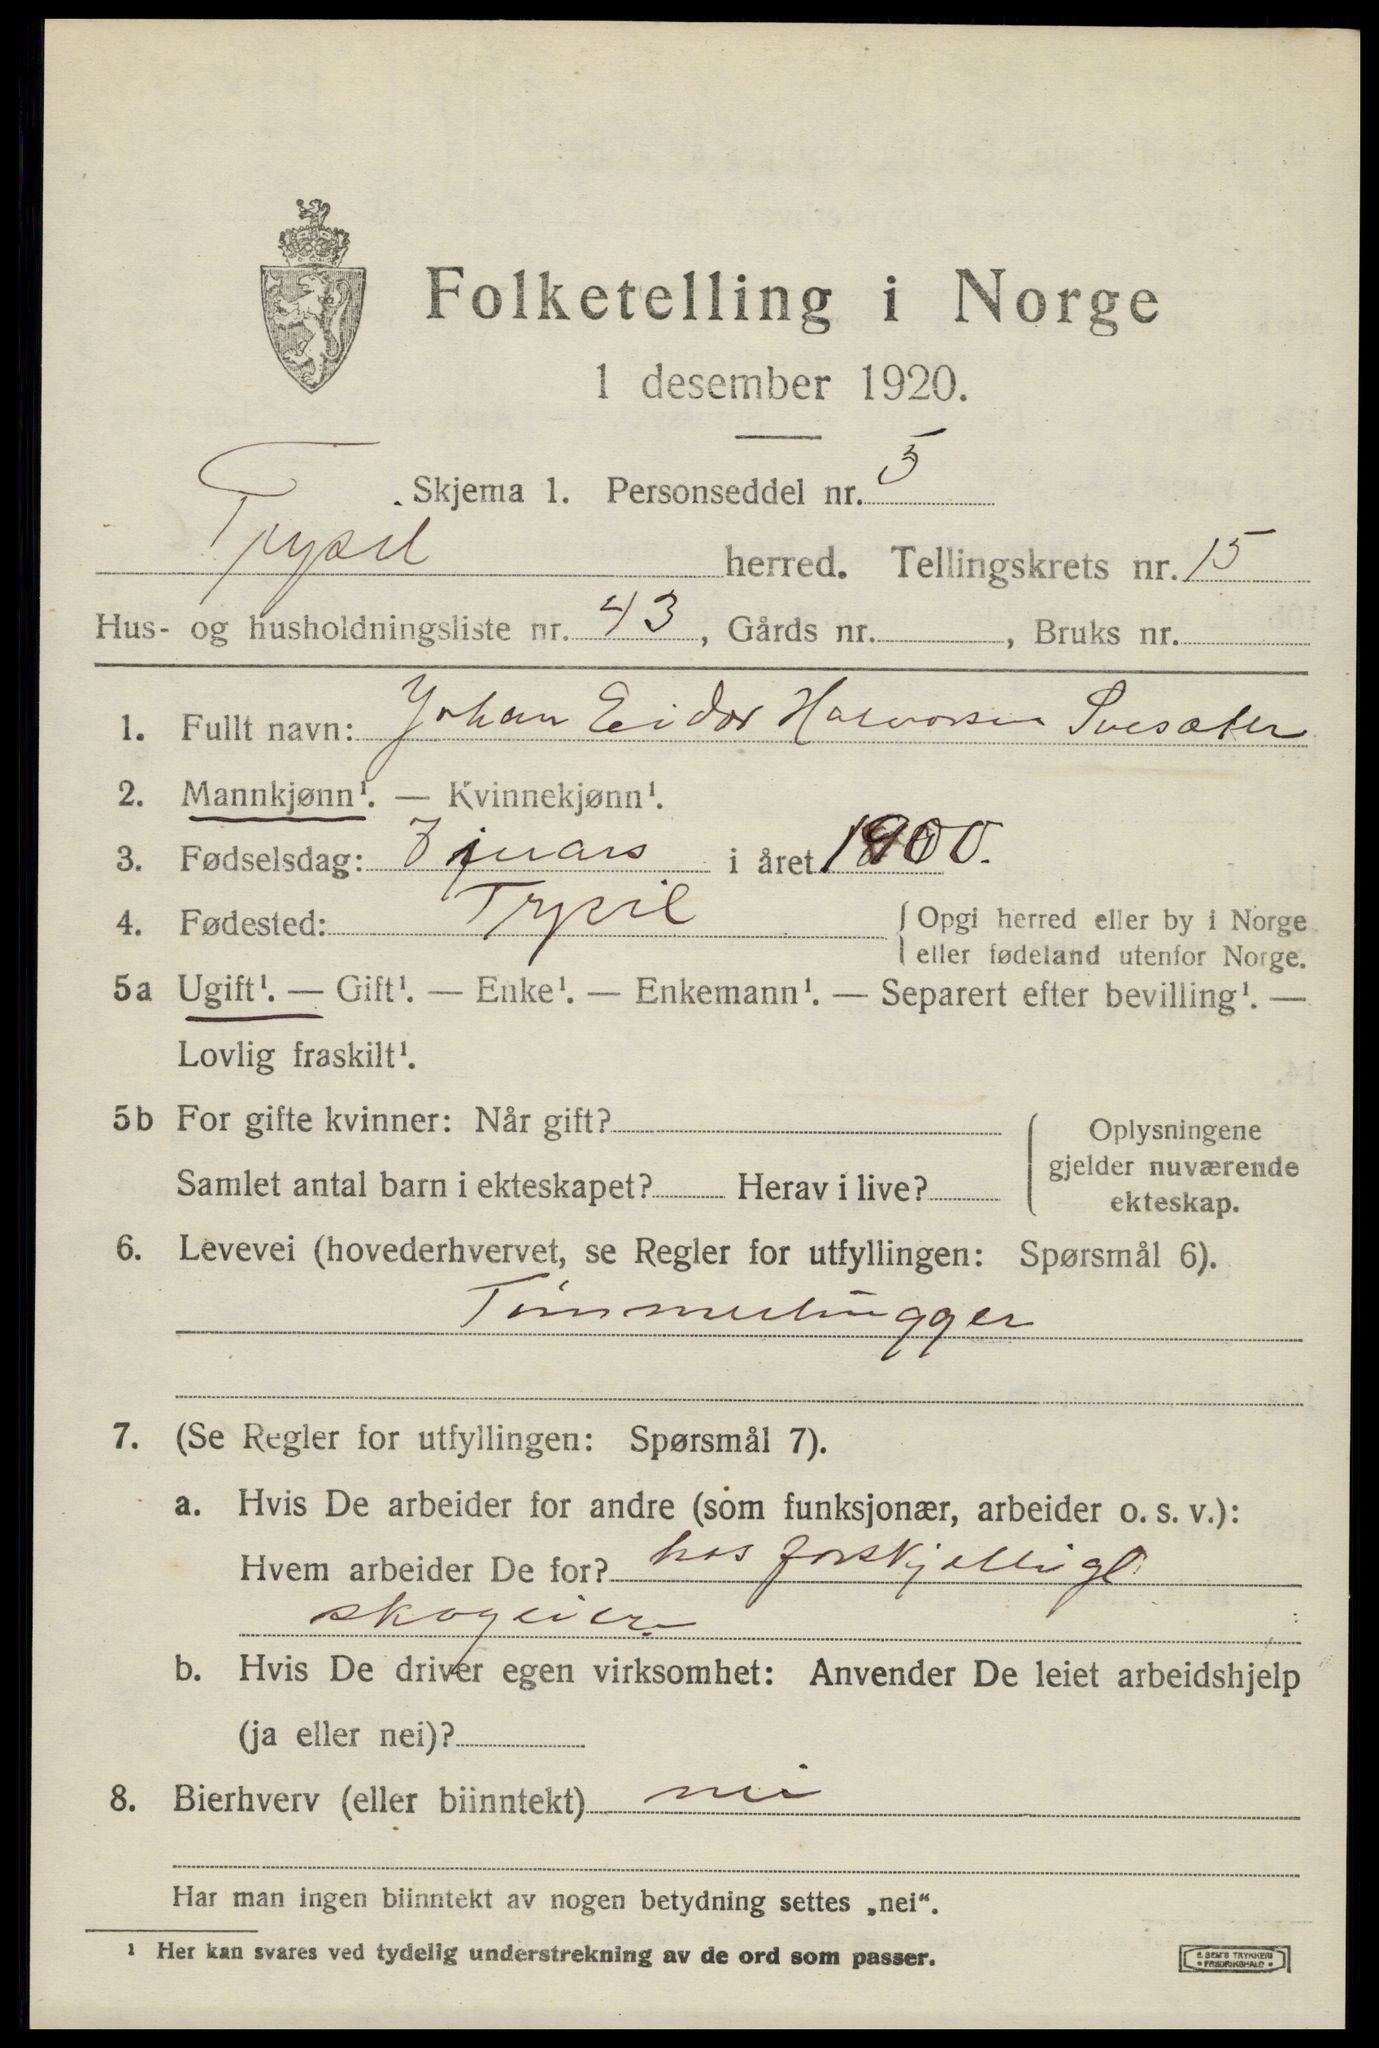 Folketelling i Norge
1 desember 1920.
Skjema 1. Personseddel nr. 5
Trysil herred. Tellingskrets nr. 15
Hus- og husholdningsliste nr. 43, Gårds nr. , Bruks nr.
1. Fullt navn: Johan Eidor Halvorsen
2. Mannkjønn¹. — Kvinnekjønn¹.
3. Fødselsdag: 7 mars i året 1900.
4. Fødested: Trysil { Opgi herred eller by i Norge
eller fødeland utenfor Norge.
5a Ugift¹. — Gift¹. — Enke¹. — Enkemann¹. — Separert efter bevilling¹. —
Lovlig fraskilt¹.
5b For gifte kvinner: Når gift?
Samlet antal barn i ekteskapet? Herav i live?
{ Oplysningene
gjelder nuværende
ekteskap.
6. Levevei (hovederhvervet, se Regler for utfyllingen: Spørsmål 6).
Tømmerhugger
7. (Se Regler for utfyllingen: Spørsmål 7).
a. Hvis De arbeider for andre (som funksjonær, arbeider o. s. v.):
Hvem arbeider De for? hos forskjellige
skogeier
b. Hvis De driver egen virksomhet: Anvender De leiet arbeidshjelp
(ja eller nei)?
8. Bierhverv (eller biinntekt) nei
Har man ingen biinntekt av nogen betydning settes „nei“.
¹ Her kan svares ved tydelig understrekning av de ord som passer.
E. SEM'S TRYKKERI
FREDRIKSHALD